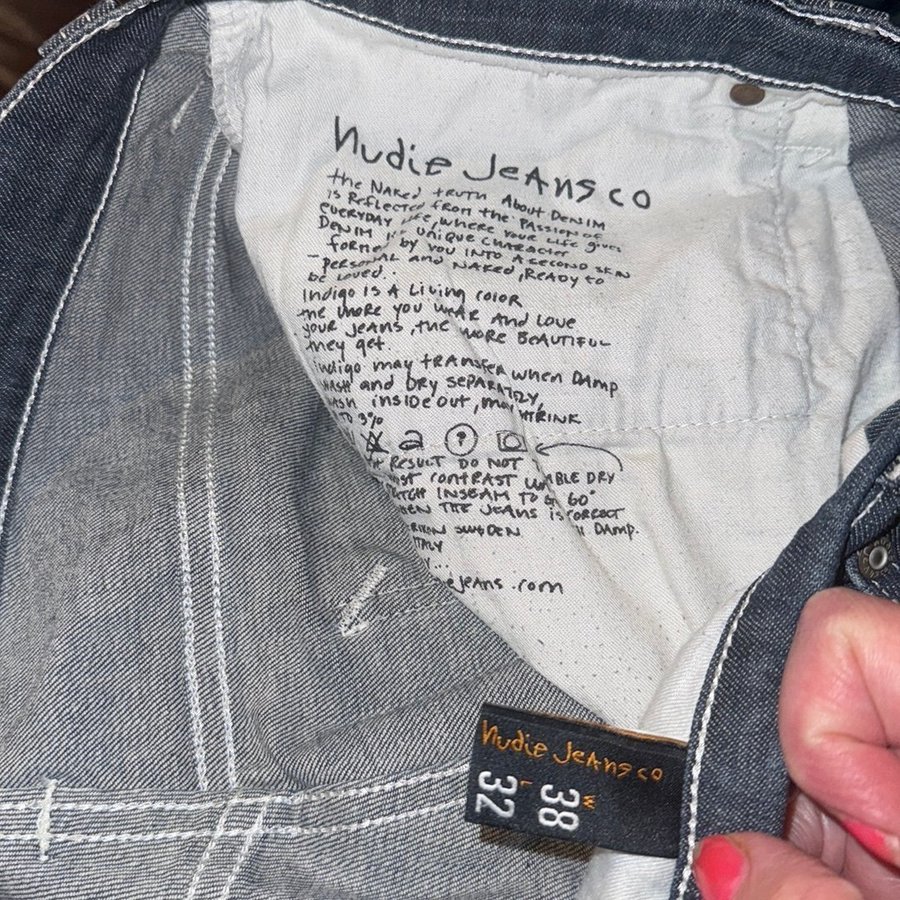 Nudie Jeans co
the NAKed tRUtH About DENIM
is Reflected from the PASSION of
EVERYDAY Life, WHERE YOUR Life gives
DENIM UNIQUE CHARACTER
formed by YOU INTO A SECOND SKIN
- PERSONAL AND NAKED, READY to
be LOVED.
Indigo IS A Living COLOR
the MORE YOU WEAR AND LOVE
YOUR JEANS, THE MORE BEAUTIFUL
they get.
Indigo may tRANSfER WHEN DAMP
WASH AND DRY SEPARATELY,
WASH INSIDE OUT, MAY SHRINK
TO 3%
RESULT DO NOT
CONTRAST BLE DRY
INSEAM TO 60°
THE JEANS IS CORRECT
SWEDEN DAMP.
ITALY
ejeans.com
Nudie Jeans co
W 38
L 32